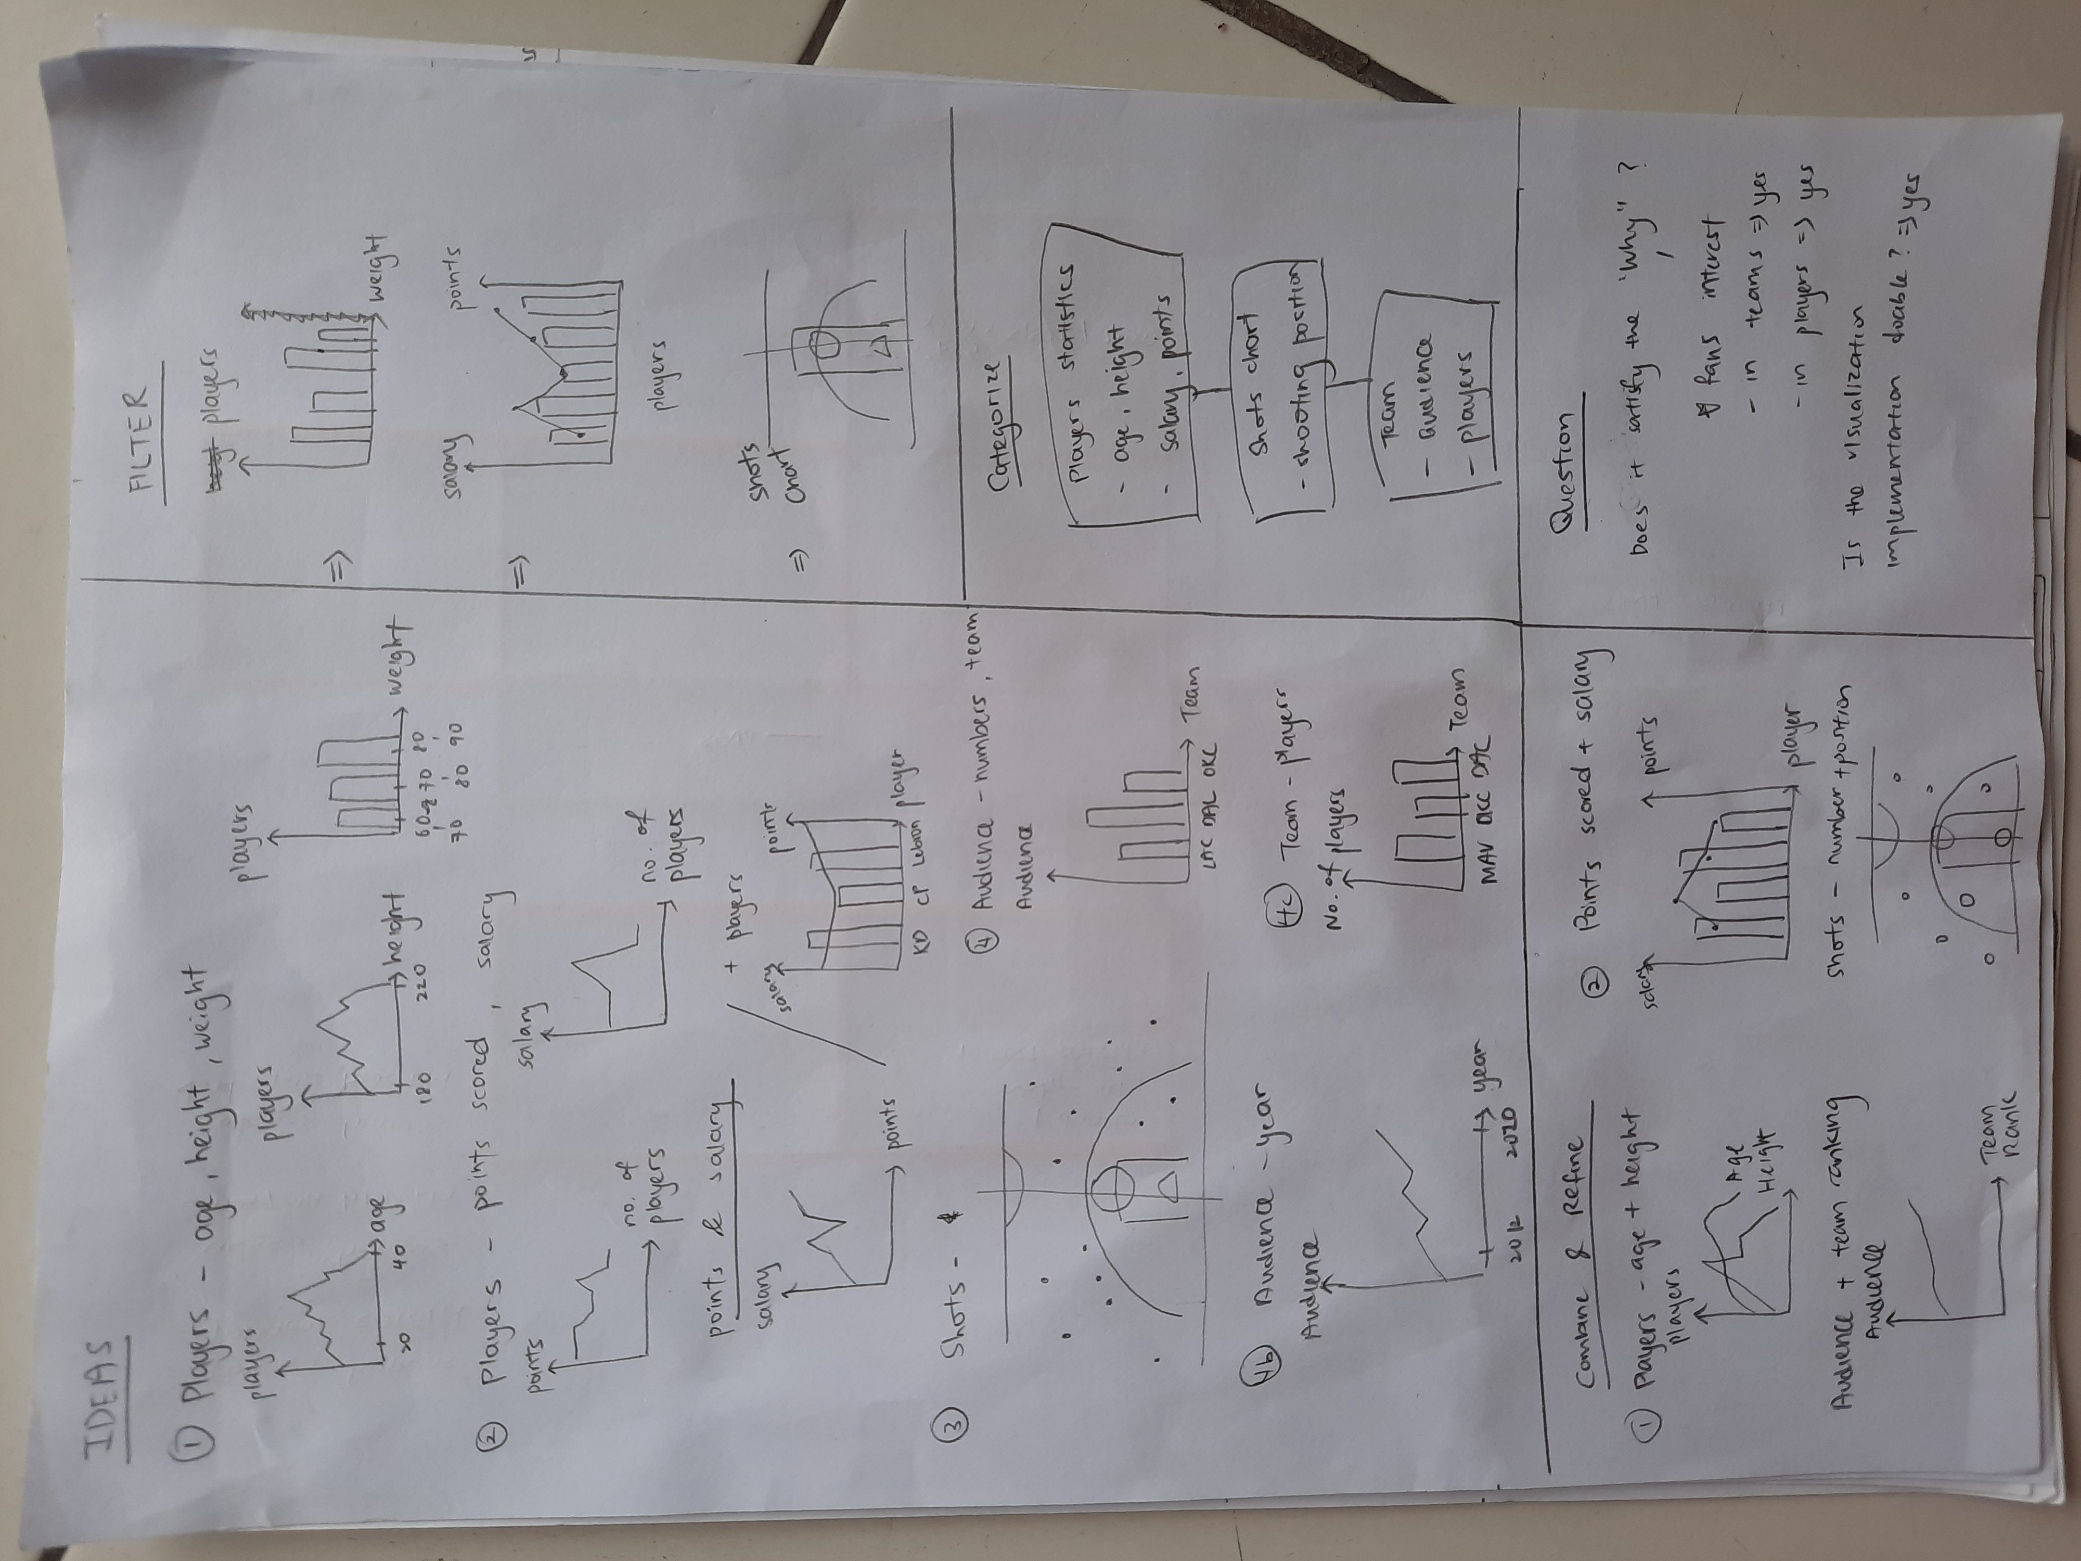 IDEAS
① Players - age, height, weight
players
20 40 age
players
180 220 height
players
60 70 80 weight
70 80 90
② Players - points scored, salary
points
no. of
players
salary
no. of
players
points & salary
salary
points
+ players
salary points
KD CP Lebron player
③ Shots -
④ Audience - numbers, team
Audience
LAC DAL OKC Team
4b Audience - year
Audience
2012 2020 year
4c Team - players
No. of players
MAV Team
FILTER
players
⇒
weight
salary points
⇒
players
⇒ shots
chart
Categorize
Players statistics
- age, height
- salary, points
Shots chart
- shooting position
Team
- audience
- players
Combine & Refine
① Players - age + height
players
Age
Height
② Points scored + salary
salary points
player
Audience + team ranking
Audience
Team
Rank
shots - number + position
Question
Does it satisfy the "Why" ?
fans interest
- in teams ⇒ yes
- in players ⇒ yes
Is the visualization
implementation doable? ⇒ yes